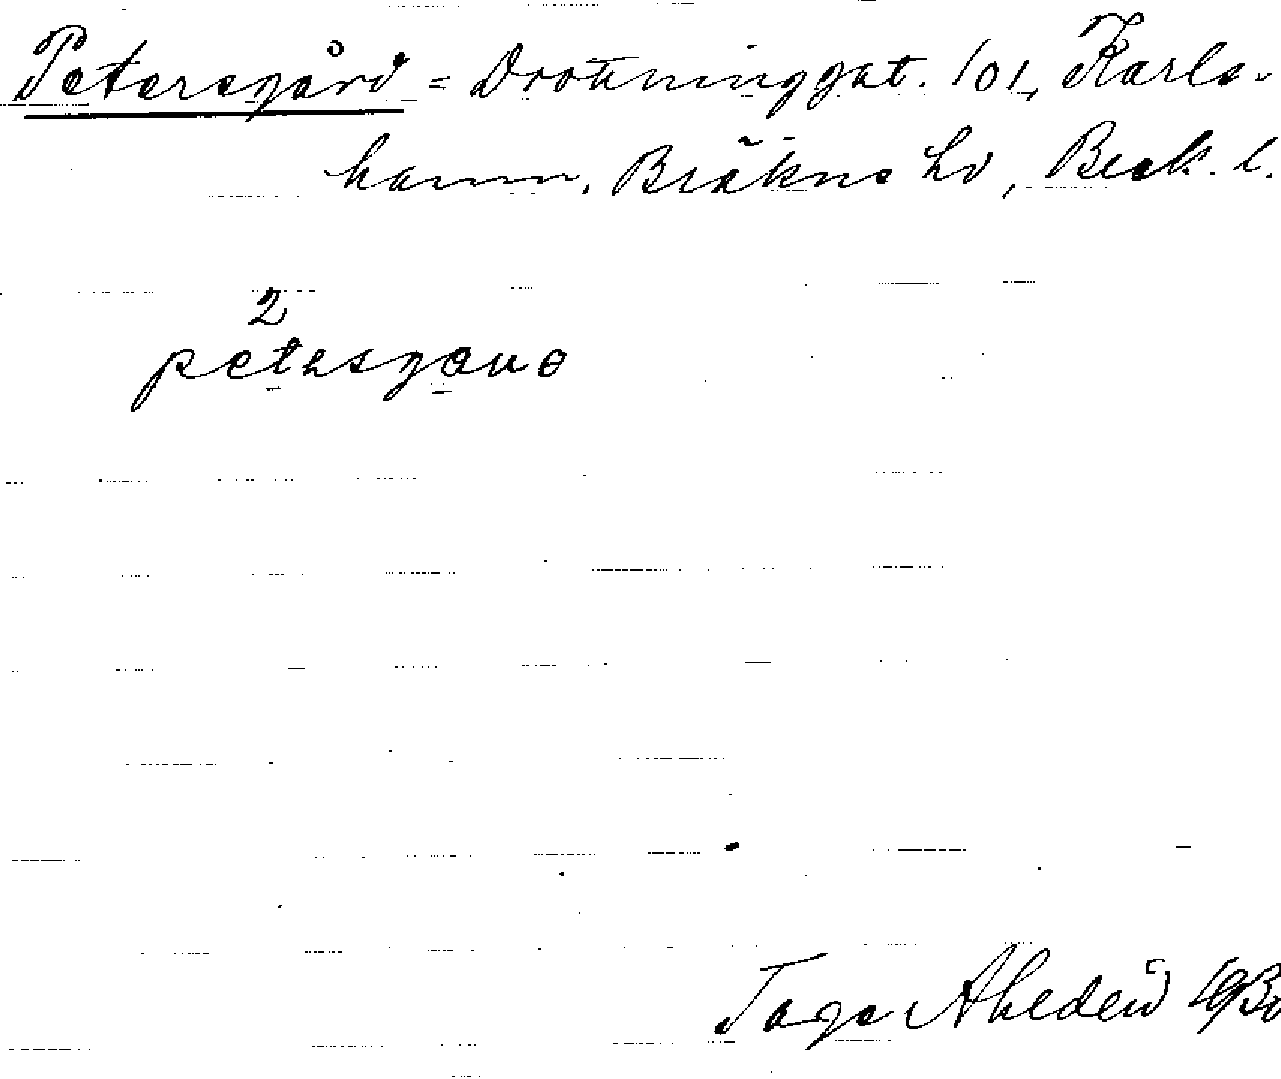 Petersgård = Drottninggat. 101, Karls-
hamn, Bräkne hd, Blek. l.
2
Tage Ahldén 1930